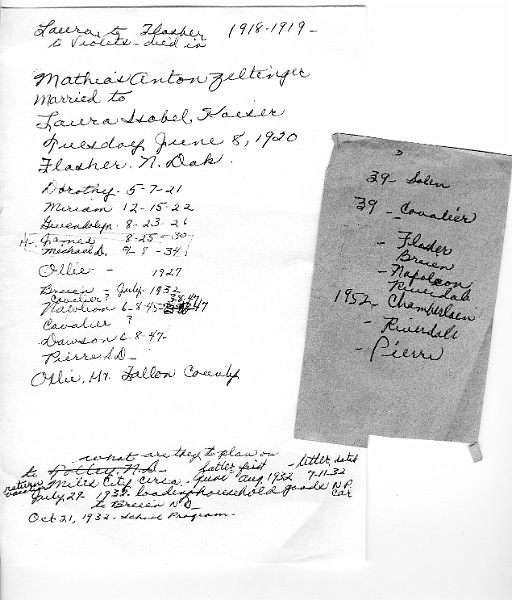 Laura to Flasher 1918-1919-
to Violets - died in
Mathias Anton Zeltinger
Married to
Laura Isobel, Kaiser
Tuesday June 8, 1920
Flasher. N. Dak.
Dorothy - 5-7-21
Miriam 12-15-22
Gwendolyn - 8-23-26
James 8-25-30
Michael D. 9-8-34
Ollie - 1927
Breien - July. 1932
Cavalier?
Nathron 6-8-45 47
Cavalier ?
Dawson 6-8-47-
Pierre S.D.-
Ollie, Mt. Fallon County
39- Solen
39- Cavalier
- Flasher
Breien
- Napoleon
Riverdale
1952- Chamberlain
- Riverdale
- Pierre
what are they to plan on
to N.D. - father first - letter dated
return Miles City circa. Aug 1932 7-11-32
July 29 1932. loading household goods N.P. car
to Breien N D -
Oct 21, 1932 - School Program -